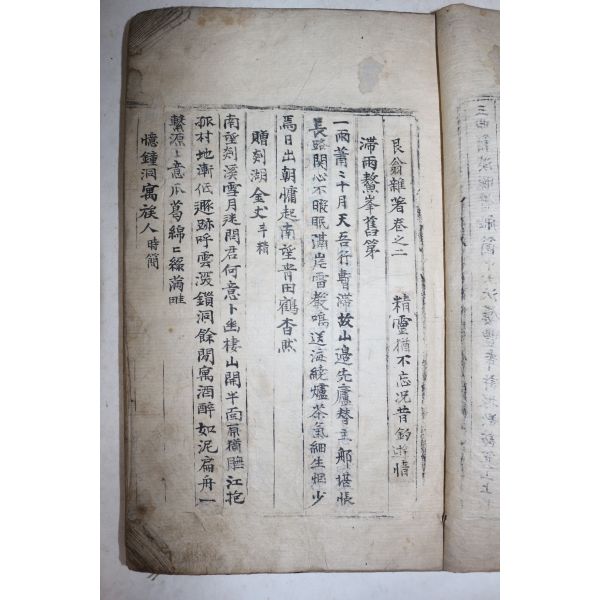 艮翁雜著卷之二 精靈猶不忘況昔釣遊情
滯雨鰲峯舊第
一雨蕭〻十月天吾行暫滯故山邊先廬替主那堪悵
長路關心不暇眠滿岸雷鳴送海繞爐茶氣細生烟少
焉日出朝慵起南望靑田鶴杳然
贈剡湖金丈 斗精
南望剡溪雪月迷問君何意卜幽棲山開半面江抱
孤村地漸低遯跡呼雲深鎖洞餘閒寓酒醉如泥扁舟一
繫源〻意瓜葛綿〻綠滿畦
憶鐘洞寓族人 時簡